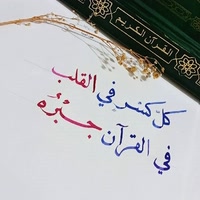 القرآن الكريم
كلّ كسرٍ في القلب
في القرآن جبْرُه